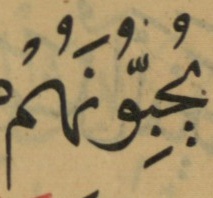 يُحِبُّونَهُمُ